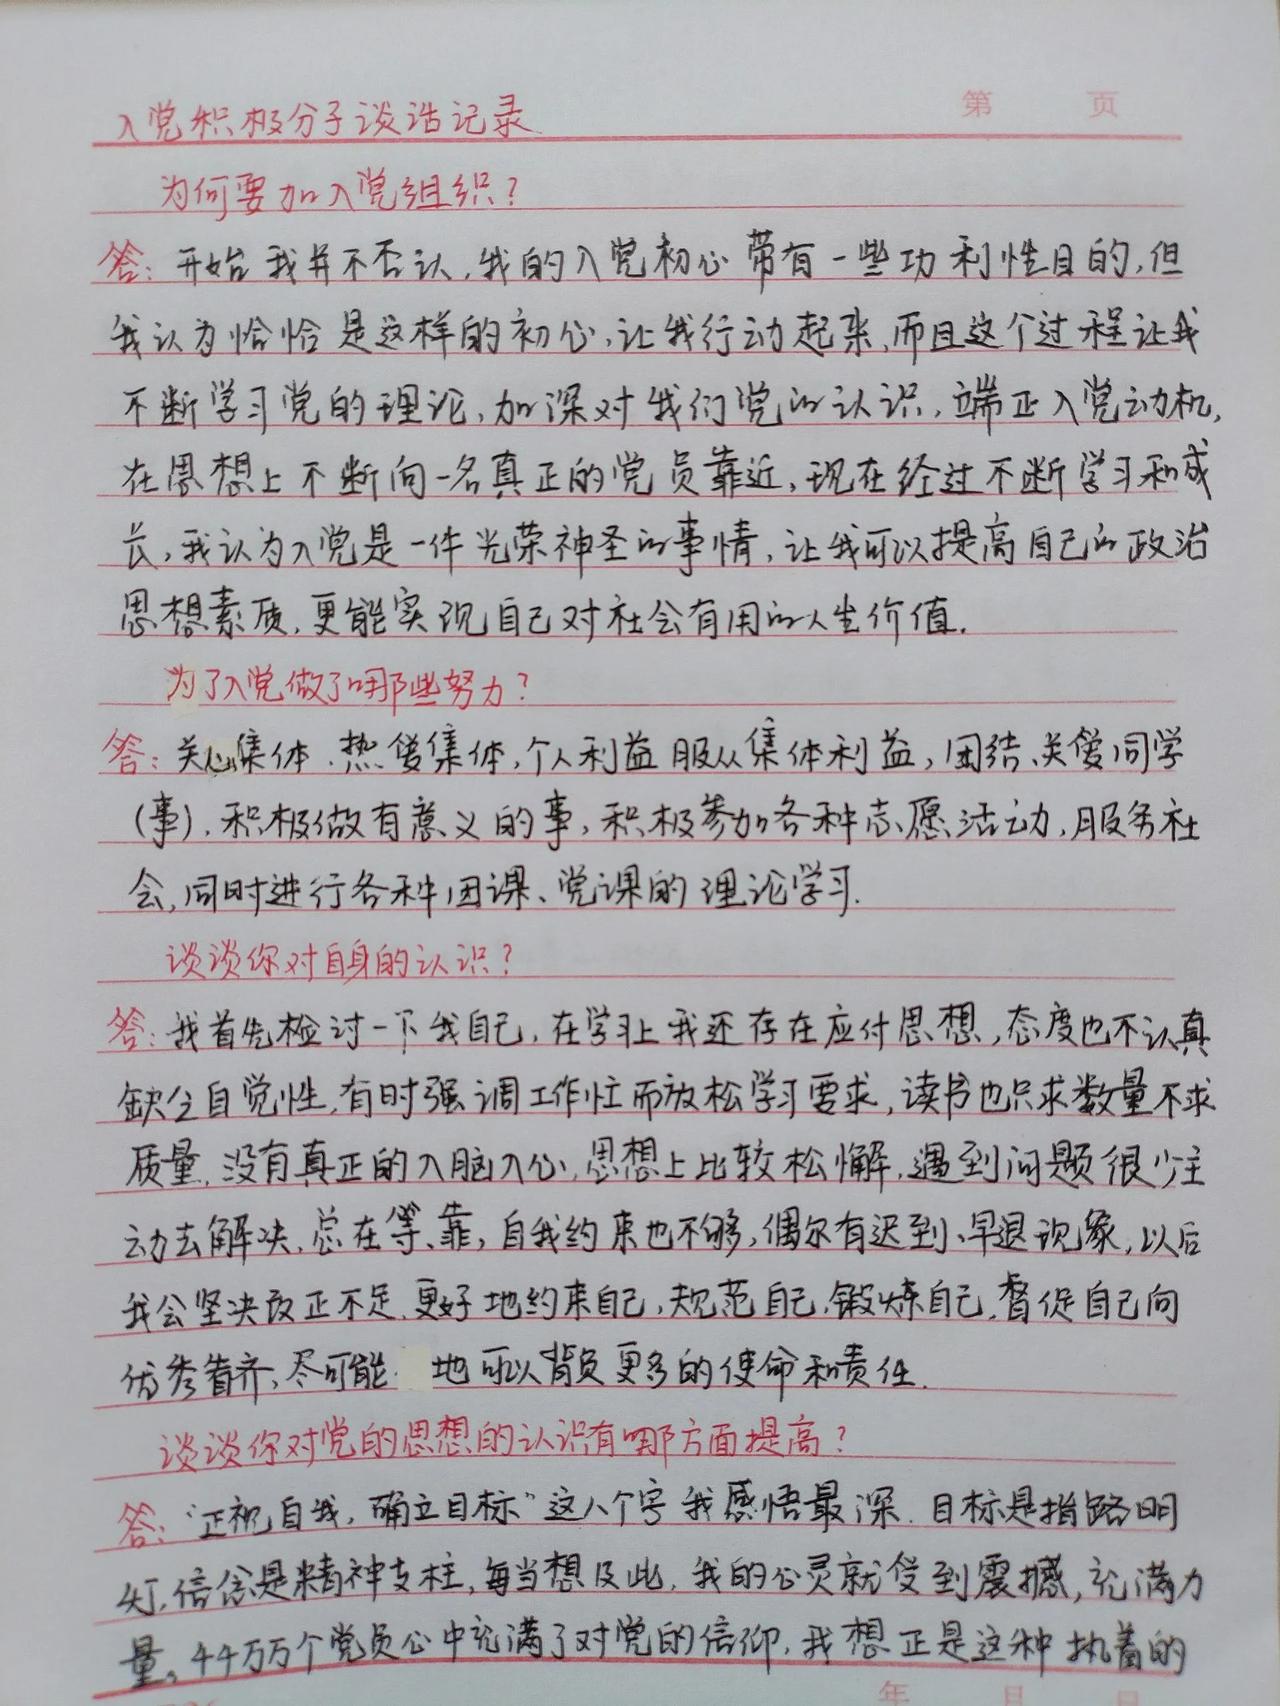 第 页
入党积极分子谈话记录
为何要加入党组织?
答:开始我并不否认,我的入党初心带有一些功利性目的,但
我认为恰恰是这样的初心,让我行动起来,而且这个过程让我
不断学习党的理论,加深对我们党的认识,端正入党动机,
在思想上不断向一名真正的党员靠近,现在经过不断学习和成
长,我认为入党是一件光荣神圣的事情,让我可以提高自己的政治
思想素质,更能实现自己对社会有用的人生价值.
为了入党做了哪些努力?
答:关心集体、热爱集体,个人利益服从集体利益,团结、关爱同学
(事),积极做有意义的事,积极参加各种志愿活动,服务社
会,同时进行各种团课、党课的理论学习.
谈谈你对自身的认识?
答:我首先检讨一下我自己,在学习上我还存在应付思想,态度也不认真
缺乏自觉性,有时强调工作忙而放松学习要求,读书也只求数量不求
质量,没有真正的入脑入心,思想上比较松懈,遇到问题很少主
动去解决,总在等、靠,自我约束也不够,偶尔有迟到、早退现象,以后
我会坚决改正不足,更好地约束自己,规范自己,锻炼自己,督促自己向
优秀看齐,尽可能 地可以背负更多的使命和责任.
谈谈你对党的思想的认识有哪方面提高?
答:"正视自我,确立目标"这八个字我感悟最深.目标是指路明
灯,信念是精神支柱,每当想及此,我的心灵就受到震撼,充满力
量。44万万个党员心中充满了对党的信仰,我想正是这种执着的
年 月 日